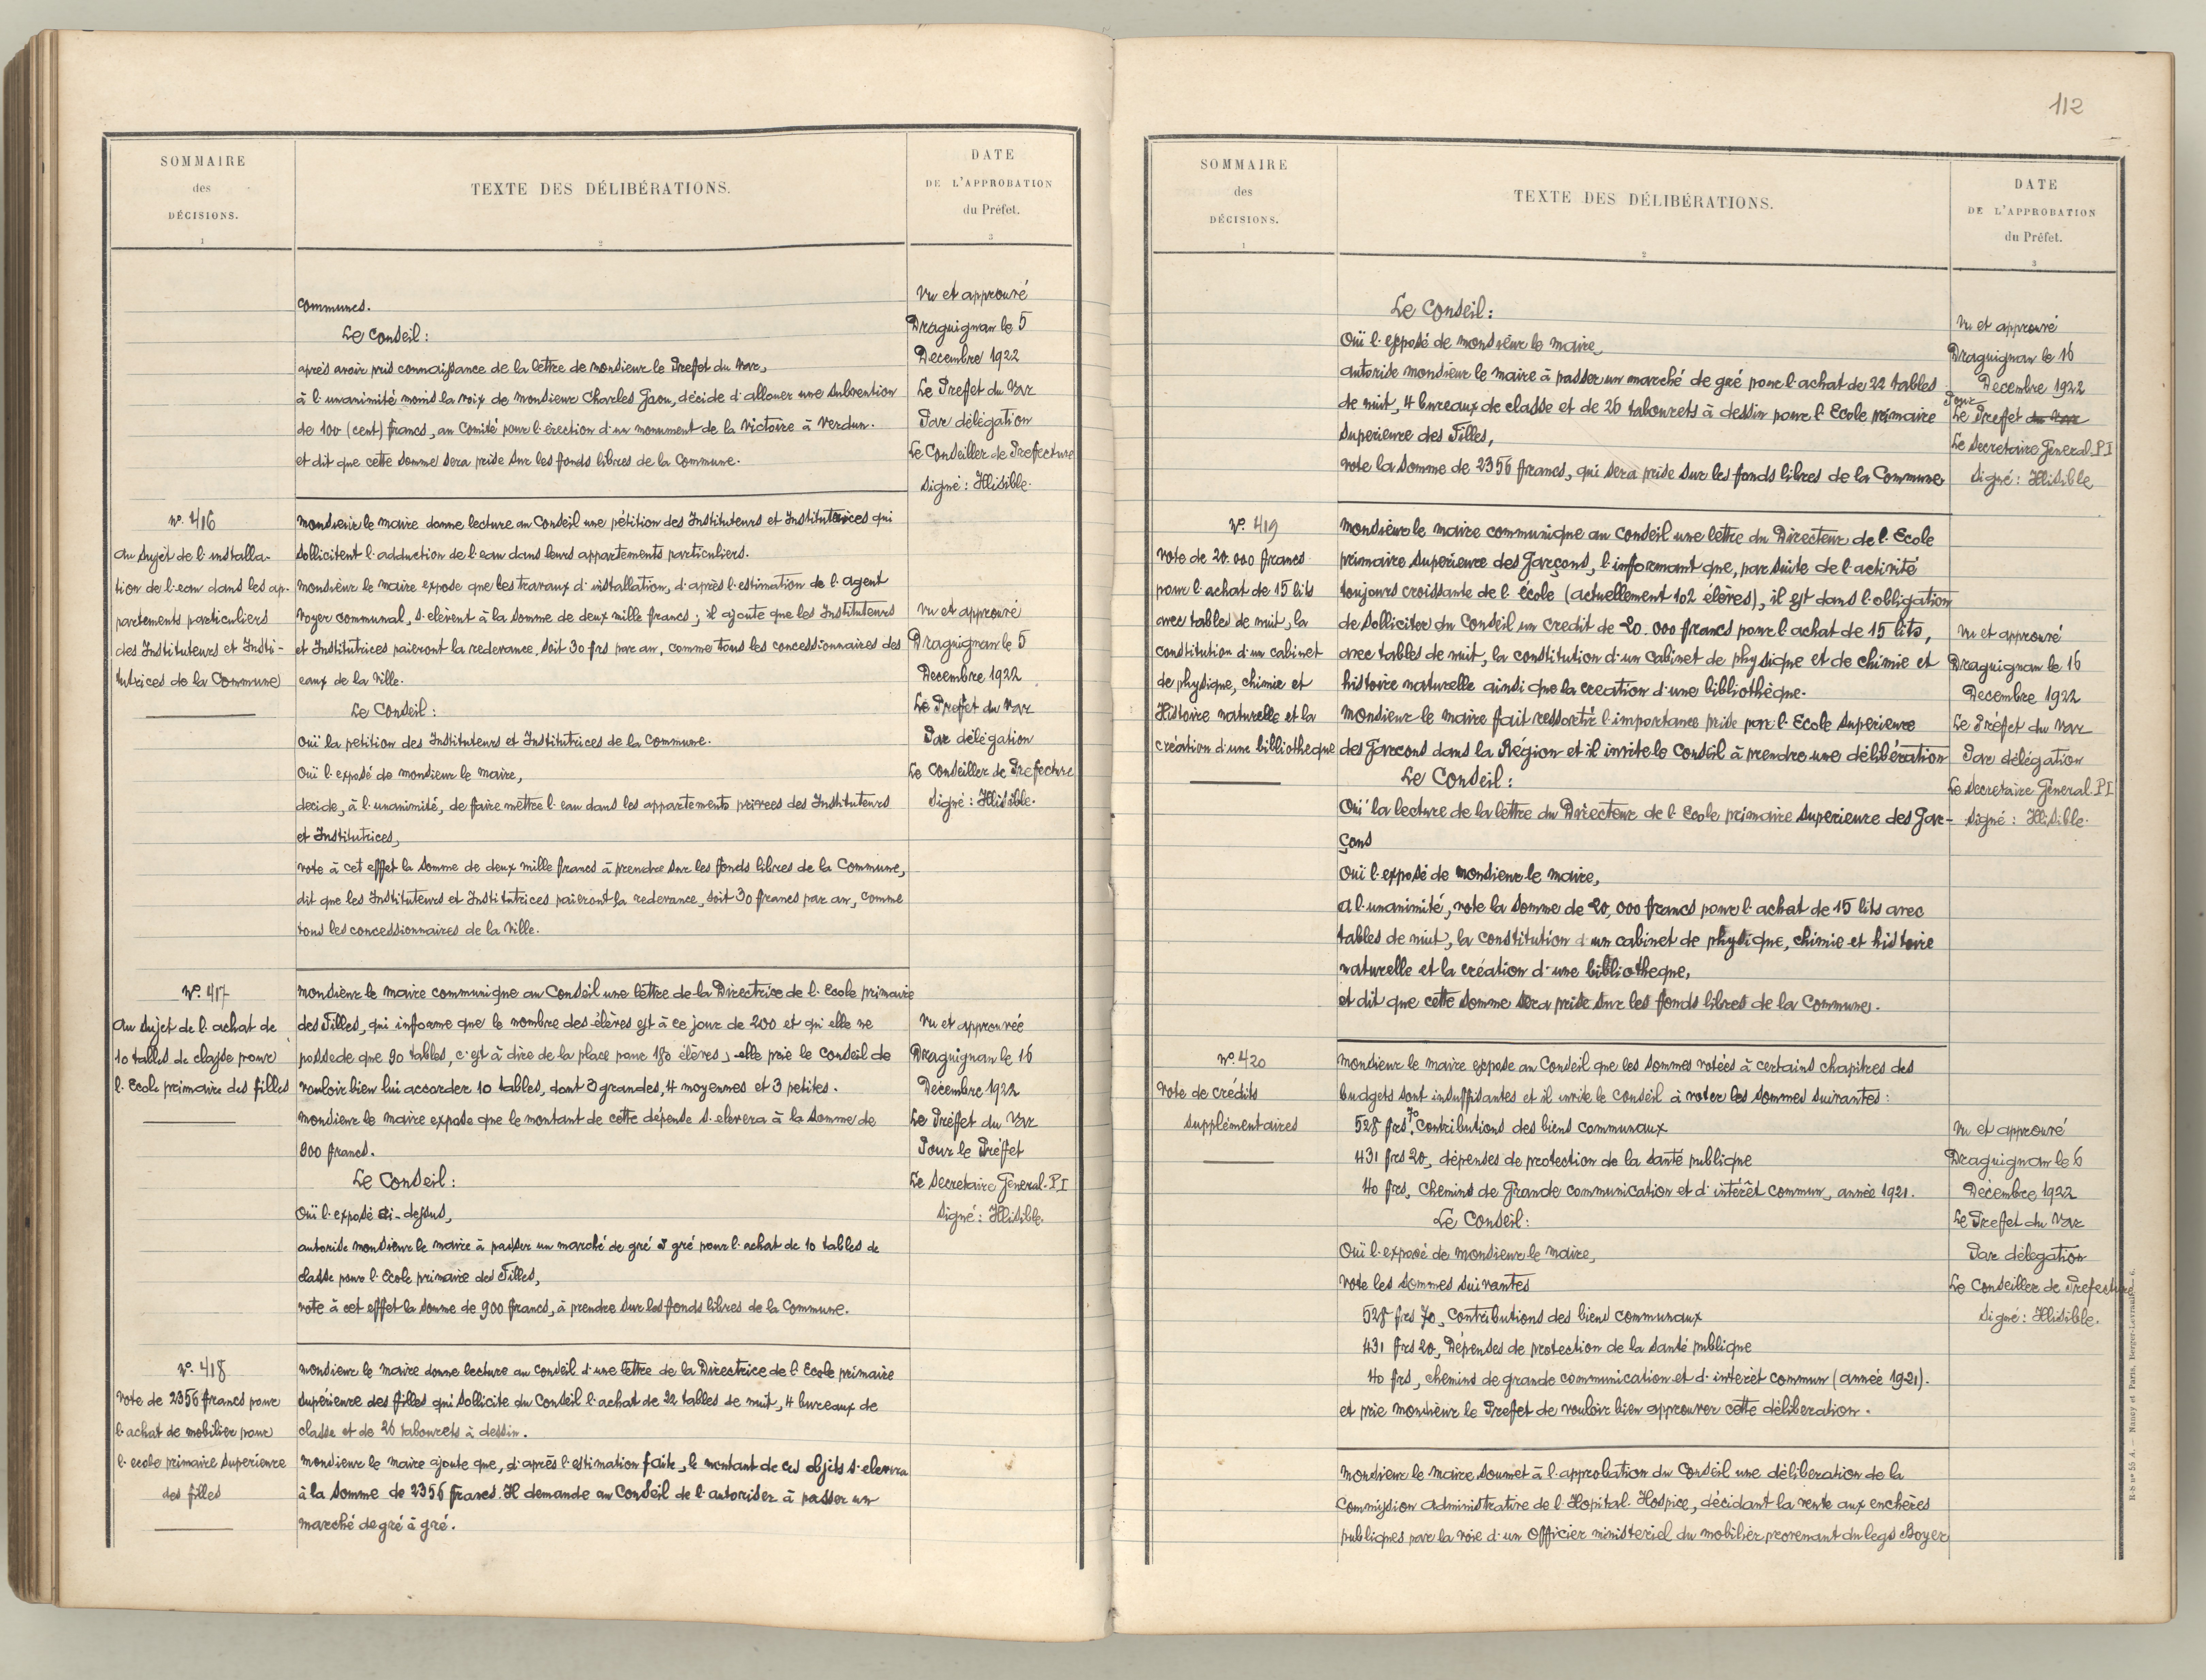 SOMMAIRE
des
DÉCISIONS.
1
TEXTE DES DÉLIBÉRATIONS.
2
DATE
DE L'APPROBATION
du Préfet.
3
communes.
Le Conseil :
après avoir pris connaissance de la lettre de Monsieur le Preffet du Var,
à l'unanimité moins la voix de Monsieur Charles Gaou, décide d'allouer une subvention
de 100 (cent) francs, au Comité pour l'érection d'un monument de la Victoire à Verdun.
et dit que cette somme sera prise sur les fonds libres de la Commune.
Vu et approuvé
Draguignan le 5
Decembre 1922
Le Preffet du Var
Par délégation
Le Conseiller de Prefecture
Signé : Illisible.
N°. 416
Au sujet de l'installa-
tion de l'eau dans les ap-
partements particuliers
des Instituteurs et Insti-
tutrices de la Commune
Monsieur le Maire donne lecture au Conseil une pétition des Instituteurs et Institutrices qui
sollicitent l'adduction de l'eau dans leurs appartements particuliers.
Monsieur le Maire expose que les travaux d'installation, d'après l'estimation de l'agent
voyer communal, s'elèvent à la somme de deux mille francs ; il ajoute que les Instituteurs
et Institutrices paieront la redevance, soit 30 frs par an, comme tous les concessionnaires des
eaux de la Ville.
Le Conseil :
Ouï la petition des Instituteurs et Institutrices de la Commune.
Ouï l'exposé de Monsieur le Maire,
decide, à l'unanimité, de faire mettre l'eau dans les appartements privees des Instituteurs
et Institutrices,
vote à cet effet la somme de deux mille francs à prendre sur les fonds libres de la Commune,
dit que les Instituteurs et Institutrices paieront la redevance, soit 30 francs par an, comme
tous les concessionnaires de la Ville.
Vu et approuvé
Draguignan le 5
Decembre 1922
Le Preffet du Var
Par délégation
Le Conseiller de Prefecture
Signé : Illisible.
N°. 417
Au sujet de l'achat de
10 tables de classe pour
l'Ecole primaire des filles
Monsieur le Maire communique au Conseil une lettre de la Directrice de l'Ecole primaire
des Filles, qui informe que le nombre des élèves est à ce jour de 200 et qu'elle ne
possede que 90 tables, c'est à dire de la place pour 180 élèves, elle prie le Conseil de
vouloir bien lui accorder 10 tables, dont 3 grandes, 4 moyennes et 3 petites.
Monsieur le Maire expose que le montant de cette dépense s'elevera à la somme de
900 francs.
Le Conseil :
Ouï l'exposé ci-dessus,
autorise Monsieur le Maire à passer un marché de gré à gré pour l'achat de 10 tables de
classe pour l'Ecole primaire des Filles,
vote à cet effet la somme de 900 francs, à prendre sur les fonds libres de la Commune.
Vu et approuvée
Draguignan le 16
Décembre 1922
Le Préfet du Var
Pour le Préffet
Le Secretaire General. P.I
Signé : Illisible.
N°. 418
Vote de 2356 francs pour
l'achat de mobilier pour
l'ecole primaire superieure
des filles
Monsieur le Maire donne lecture au Conseil d'une lettre de la Directrice de l'Ecole primaire
Supérieure des filles qui sollicite du Conseil l'achat de 22 tables de nuit, 4 bureaux de
classe et de 26 tabourets à dessin.
Monsieur le Maire ajoute que, d'après l'estimation faite, le montant de ces objets s'elevera
à la somme de 2356 francs. Il demande au Conseil de l'autoriser à passer un
marché de gré à gré.
112
SOMMAIRE
des
DÉCISIONS.
1
TEXTE DES DÉLIBÉRATIONS.
2
DATE
DE L'APPROBATION
du Préfet.
3
Le Conseil :
Ouï l'exposé de Monsieur le Maire,
autorise Monsieur le Maire à passer un marché de gré pour l'achat de 22 tables
de nuit, 4 bureaux de classe et de 26 tabourets à dessin pour l'Ecole primaire
Superieure des Filles,
vote la somme de 2356 francs, qui sera prise sur les fonds libres de la Commune.
Vu et approuvé
Draguignan le 16
Décembre 1922
Pour
Le Preffet du Var
Le Secretaire General. P.I
Signé : Illisible
N°. 419
Vote de 20.000 francs
pour l'achat de 15 lits
avec tables de nuit, la
constitution d'un cabinet
de physique, chimie et
Histoire naturelle et la
création d'une bibliotheque
Monsieur le Maire communique au Conseil une lettre du Directeur de l'Ecole
primaire Superieure des Garçons, l'informant que, par suite de l'activité
toujours croissante de l'école (actuellement 102 élèves), il est dans l'obligation
de solliciter du Conseil un credit de 20.000 francs pour l'achat de 15 lits,
avec tables de nuit, la constitution d'un cabinet de physique et de chimie et
histoire naturelle ainsi que la creation d'une bibliothèque.
Monsieur le Maire fait ressortir l'importance prise par l'Ecole Superieure
des Garcons dans la Région et il invite le Conseil à prendre une délibération
Le Conseil :
Ouï la lecture de la lettre du Directeur de l'Ecole primaire Superieure des Gar-
çons
Ouï l'exposé de Monsieur le Maire,
A l'unanimité, vote la somme de 20,000 francs pour l'achat de 15 lits avec
tables de nuit, la constitution d'un cabinet de physique, chimie et histoire
naturelle et la création d'une bibliotheque,
et dit que cette somme sera prise sur les fonds libres de la Commune.
Vu et approuvé
Draguignan le 16
Decembre 1922
Le Préfet du Var
Par délégation
Le Secretaire General. P.I
Signé : Illisible.
N°. 420
Vote de crédits
supplémentaires
Monsieur le Maire expose au Conseil que les sommes votées à certains chapitres des
budgets sont insuffisantes et il invite le Conseil à voter les sommes suivantes :
528 frs 70, Contributions des biens communaux
431 frs 20, dépenses de protection de la santé publique
40 frs, Chemins de Grande communication et d'intérêt commun, année 1921.
Le Conseil :
Ouï l'exposé de Monsieur le Maire,
vote les sommes suivantes
528 frs 70, Contributions des biens communaux
431 frs 20, Dépenses de protection de la Santé publique
40 frs, chemins de grande communication et d'interêt commun (année 1921).
et prie Monsieur le Preffet de vouloir bien approuver cette déliberation.
Vu et approuvé
Draguignan le 6
Décembre 1922
Le Preffet du Var
Par délegation
Le Conseiller de Prefecture
Signé : Illisible.
Monsieur le Maire soumet à l'approbation du Conseil une déliberation de la
Commission Administrative de l'Hopital-Hospice, décidant la vente aux enchères
publiques par la voie d'un Officier ministeriel du mobilier provenant du legs Boyer
R-b n° 55 A. — Nancy et Paris, Berger-Levrault. 6.